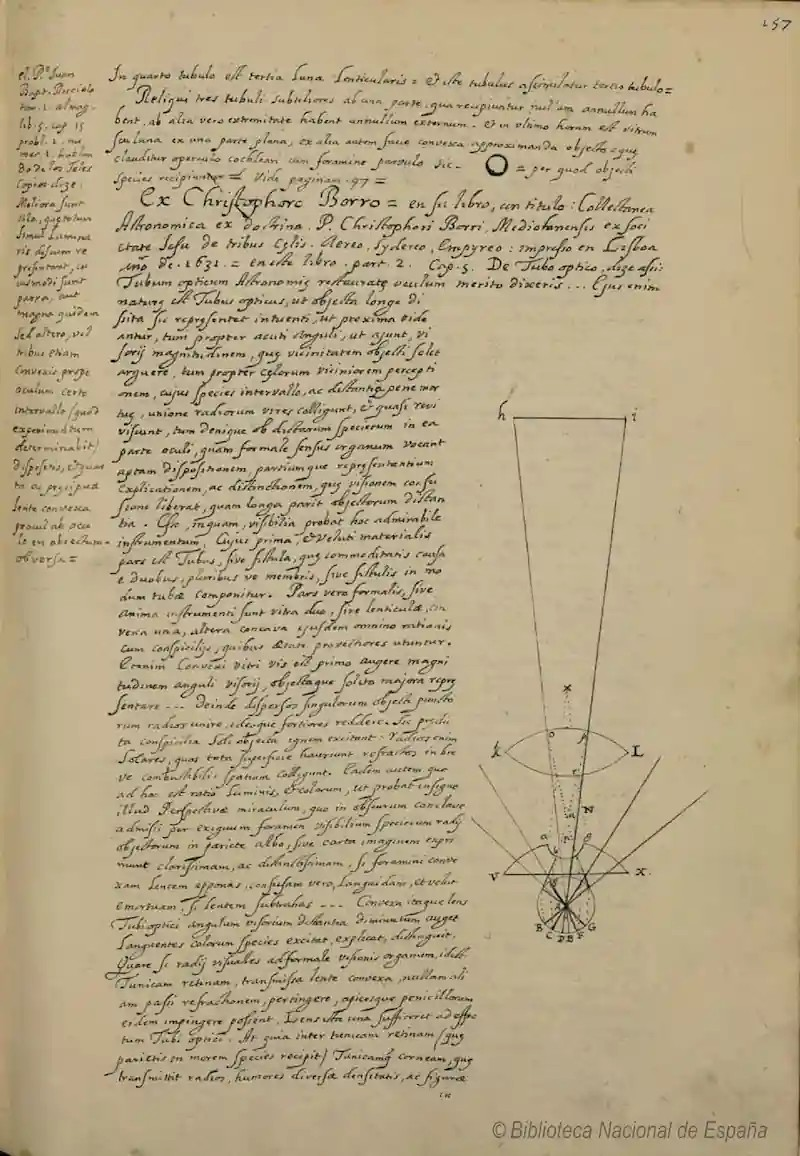 157
el P.e Juan
Bapt. Riciolo
tom. 1. almag.
lib. 5. cap. 15
probl. 2. nu
mer. 1. hablan
do de los Teles
copios dize.
Meliora sunt
illa, quæ totum
simul Lumina
ris discum re
præsentant, cu
iusmodi sunt
parva, aut
magna quidem
sed altero, vel
tribus etiam
convexis prope
oculum certo
intervallo (quod
experimentum
determinabit)
dispositis, et
lente convexa
procul ab ocu
lo en obiectum
obversa =
In quarto tubulo est tertia Luna Lenticularis = Et iste tubulus assimilatur tertio tubulo =
Reliqui tres tubuli subtiliores ab una parte, qua recipiuntur nullum annullum ha
bent, ab alia vero extremitate habent annullum externum. Et in ultimo horum est vitrum
seu luna ex una parte plana, ex alia autem facie convexa approximanda objecto, quæ
clauditur operculo cochleari cum foramine parvulo sic. O = per quod objecti
species recipiuntur = Vide paginam 97 =
Ex Christophoro Borro = en su libro, cun titulo: Collectanea
Astronomica ex doctrina. P. Christophori Borri, Mediolanensis ex soci
etate Jesu de tribus Cælis. Aereo, Sydereo, Empyreo: impreso en Lisboa
año de 1631. = en este libro. part. 2. Cap. 5. De Tubo optico, dize assi:
Tubum opticum Astronomiæ restauratæ oculum merito dixeris... Ejus enim
naturæ est Tubus opticus, ut objecta longe di
ssita sic repræsentet intuenti, ut proxima vide
antur, tum propter acuti anguli, ut ajunt, vi
sorij magnitudinem, quæ vicinitatem objecti solet
arguere, tum propter colorum viciniorem percepti
onem, cujus species intervallo, ac distantia pene mor
tuæ, unione radiorum vires colligunt, et quasi revi
viscunt, tum denique ob dictarum specierum in ea
parte oculi, quam formale sensus organum vocant
aptam dispositionem, partiumque repræsentantium
explicationem, ac distinctionem, quæ visionem confu
sione liberat, quam longa parit objectorum distan
tia. Esse, inquam, visibilia probat hoc admirabile
instrumentum. Cujus prima, et veluti materialis
pars est Tubus, sive fistula, quæ commoditatis causa
e duobus, pluribus ve membris, sive fistulis in mo
dum tubæ componitur. Pars vero formalis, sive
anima instrumenti sunt vitra duo, sive lenticulæ, con
vexa una, altera concava ejusdem omnino rationis
cum conspicilijs, quibus ætate provectiores utuntur.
Etenim Convexi vitri vis est primo augere magni
tudinem anguli visorij, objectaque solito majora repræ
sentare --- Deinde dispersos singulorum objecti puncto
rum radios unire, ideoque fortiores reddere. Sic
conspicilia Soli objecta ignem excitant: radios enim
solares, quos tota superficie hauriunt refractos in bre
ve combustibilis spatium colligunt. Eadem autem quo
ad hoc est ratio luminis, et colorum, ut probat insigne
illud Perspectivæ miraculum, quo in obscurum conclave
admissi per exiguum foramen visibilium specierum radij
objectorum in pariete albo, sive carta imaginem expri
munt clarissimam, ac distinctissimam, si foramini conve
xam lentem apponas, confusam vero, languidam, et velut
emortuam, si lentem subtrahas --- Convexa itaque lens
Tubi optici angulum visorium distantia diminutum auget
Languentes colorum species excitat, explicat, distinguit.
Quare si radij visuales ad formale visionis organum, idest
Tunicam retinam, transmissa lente convexa, nullam ali
am passi refractionem, pertingere, apicesque penicillorum
eidem impingere possent, Lens ista una sufficeret ad effec
tum Tubi optici. At quia inter tunicam retinam (quæ
parietis in morem species recipit) Tunicamq corneam, quæ
transmittit radios, humores diversæ densitatis, ac figuræ
in
h i
k L
N
V X
B C D E F G
© Biblioteca Nacional de España